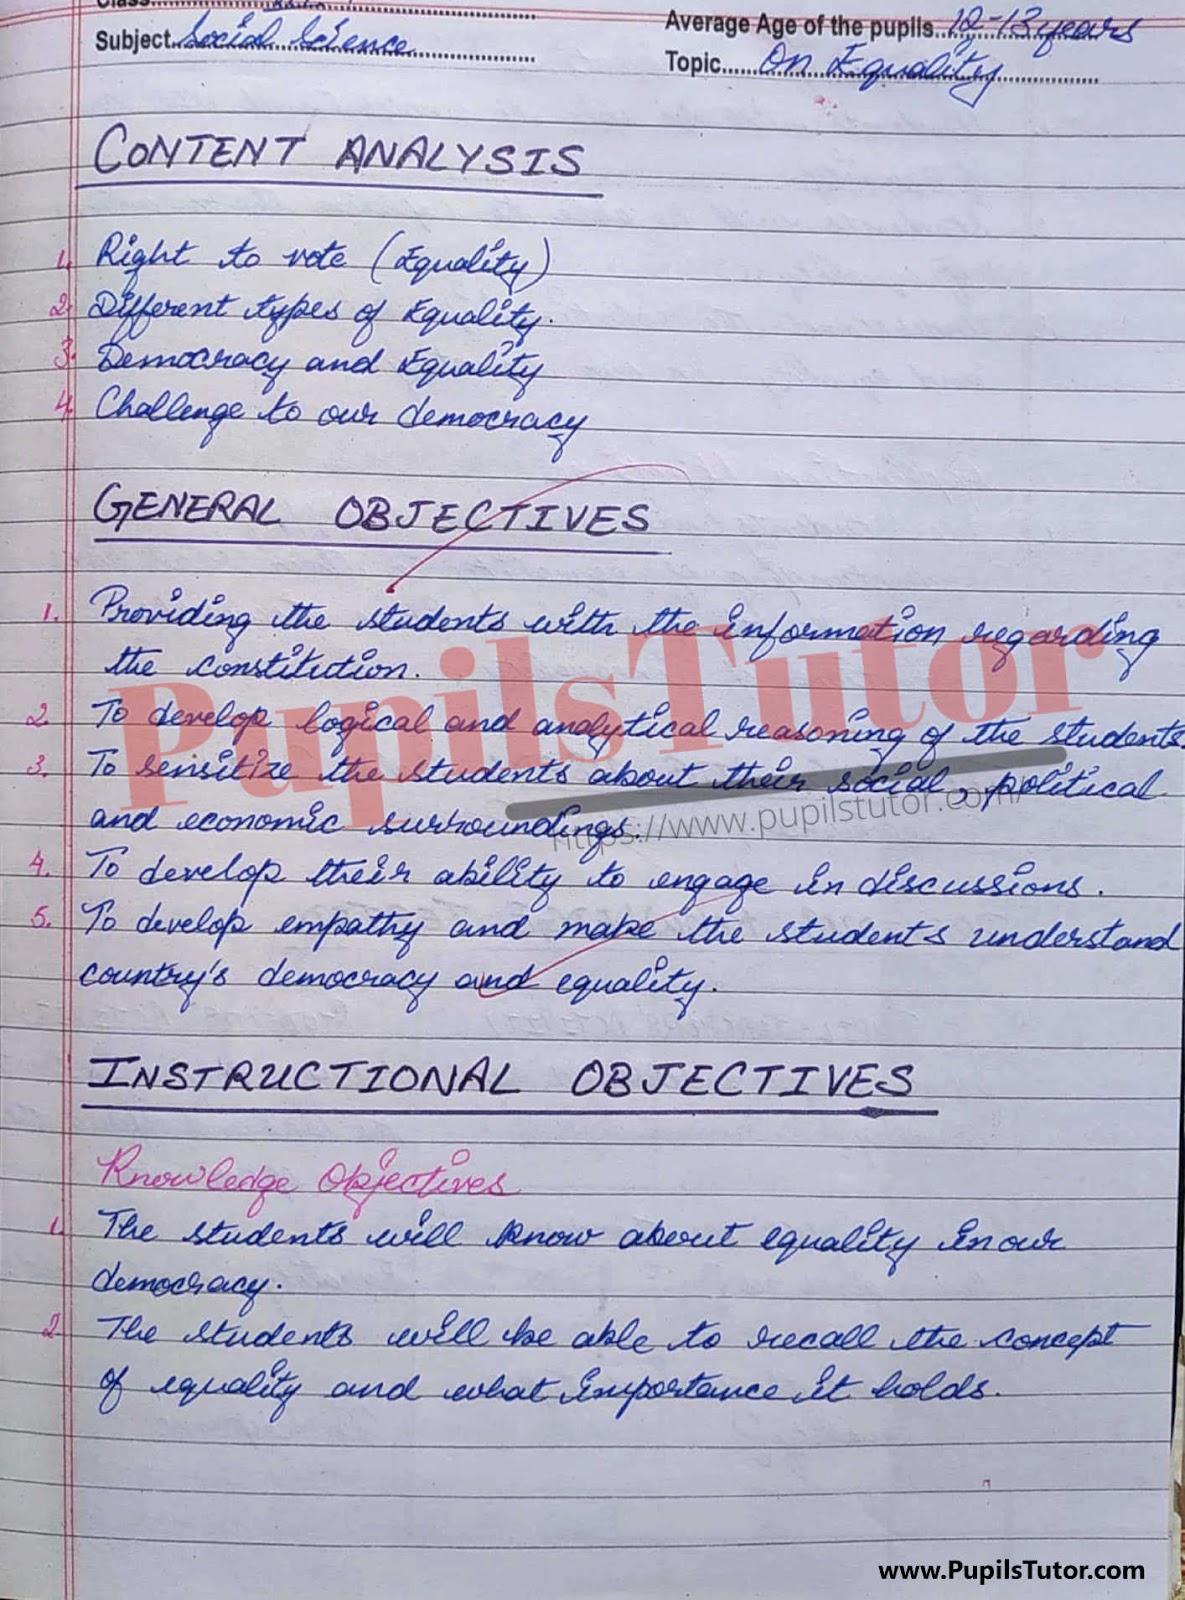 Average Age of the pupils 12-13 years
Subject Social Science
Topic On Equality
CONTENT ANALYSIS
1. Right to vote (Equality)
2. Different types of Equality.
3. Democracy and Equality
4. Challenge to our democracy
GENERAL OBJECTIVES
1. Providing the students with the information regarding
the constitution.
2. To develop logical and analytical reasoning of the students.
3. To sensitize the students about their social, political
and economic surroundings.
4. To develop their ability to engage in discussions.
5. To develop empathy and make the students understand
country's democracy and equality.
PupilsTutor
https://www.pupilstutor.com/
INSTRUCTIONAL OBJECTIVES
Knowledge Objectives
1. The students will know about equality in our
democracy.
2. The students will be able to recall the concept
of equality and what importance it holds.
www.PupilsTutor.com